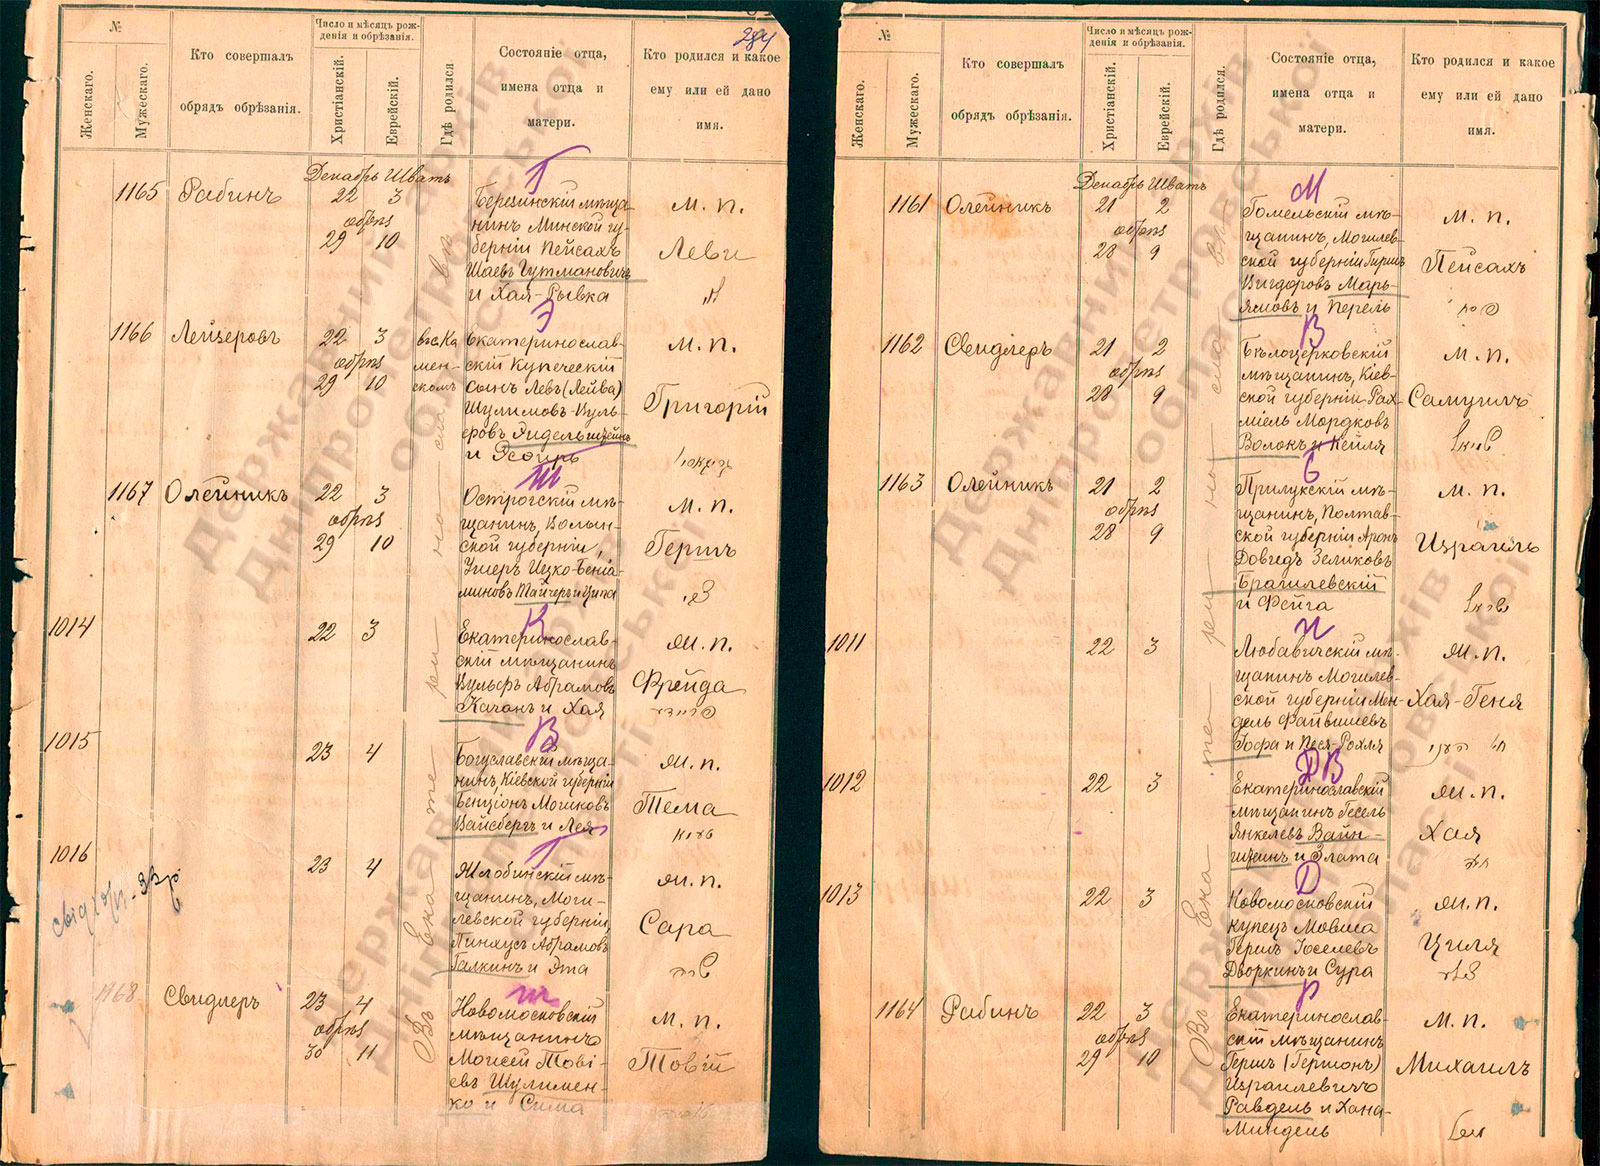 №
Женскаго.
Мужескаго.
Кто совершалъ
обрядъ обрѣзанія.
Число и мѣсяцъ рож-
денія и обрѣзанія.
Христіанскій.
Еврейскій.
Гдѣ родился
Состояніе отца,
имена отца и
матери.
Кто родился и какое
ему или ей дано
имя.
284
Декабрь Шватъ
1165 Рабинъ 22 3
обрѣз
29 10
Г
Березинскій мѣща-
нинъ Минской гу-
берніи Пейсахъ
Шаевъ Гутмановичъ
и Хая-Рывка
м. п.
Леви
1166 Лейзеровъ 22 3
обрѣз
29 10
въ с. Ка
мен-
скомъ
Э
Екатеринослав-
скій купеческій
сынъ Левъ (Лейва)
Шулимовъ-Вуль-
фовъ Эйдельштейнъ
и Эсѳирь
м. п.
Григорій
1167 Олейникъ 22 3
обрѣз
29 10
Т
Острогскій мѣ-
щанинъ, Волын-
ской губерніи,
Ушеръ Ицко-Беніа-
миновъ Тайчеръ и Ципа
м. п.
Гершъ
1014 22 3
К
Екатеринослав-
скій мѣщанинъ
Вульфъ Абрамовъ
Каганъ и Хая
ж. п.
Фрейда
פריידע
1015 23 4
В
Богуславскій мѣща-
нинъ, Кіевской губерніи
Бенціонъ Мошковъ
Вайсбергъ и Лея
ж. п.
Тема
1016 23 4
Г
Жлобинскій мѣ-
щанинъ, Моги-
левской губерніи,
Пинхусъ Абрамовъ
Галкинъ и Эта
ж. п.
Сара
שרה
1168 Свидлеръ 23 4
обрѣз
30 11
Ш
Новомосковскій
мѣщанинъ
Моисей Тові-
евъ Шулимен-
ко и Сима
м. п.
Товій
Въ Ека те ри но сла вѣ
№
Женскаго.
Мужескаго.
Кто совершалъ
обрядъ обрѣзанія.
Число и мѣсяцъ рож-
денія и обрѣзанія.
Христіанскій.
Еврейскій.
Гдѣ родился.
Состояніе отца,
имена отца и
матери.
Кто родился и какое
ему или ей дано
имя.
Декабрь Шватъ
1161 Олейникъ 21 2
обрѣз
28 9
М
Гомельскій мѣ-
щанинъ, Могилев-
ской губерніи Гиршъ
Вигдоровъ Марь-
ямовъ и Перель
м. п.
Пейсахъ
פסח
1162 Свидлеръ 21 2
обрѣз
28 9
В
Бѣлоцерковскій
мѣщанинъ, Кіев-
ской губерніи Рах-
міель Мордковъ
Волокъ и Кейля
м. п.
Самуилъ
שמואל
1163 Олейникъ 21 2
обрѣз
28 9
Б
Прилукскій мѣ-
щанинъ, Полтав-
ской губерніи Аронъ
Довидъ Зеликовъ
Брагилевскій
и Фейга
м. п.
Израиль
ישראל
1011 22 3
И
Любавичскій мѣ-
щанинъ Могилев-
ской губерніи Мен-
дель Файвишевъ
и Песя-Рохля
ж. п.
Хая-Геня
1012 22 3
ДВ
Екатеринославскій
мѣщанинъ Гесель
Янкелевъ Вайн-
штейнъ и Злата
ж. п.
Хая
חיה
1013 22 3
Д
Новомосковскій
купецъ Мовша
Гершъ Іоселевъ
Дворкинъ и Сура
ж. п.
Циля
1164 Рабинъ 22 3
обрѣз
29 10
Р
Екатеринослав-
скій мѣщанинъ
Гершъ (Германъ)
Израилевичъ
Равдель и Хана-
Миндель
м. п.
Михаилъ
Въ Ека те ри но сла вѣ
Державний архів
Дніпропетровської
області